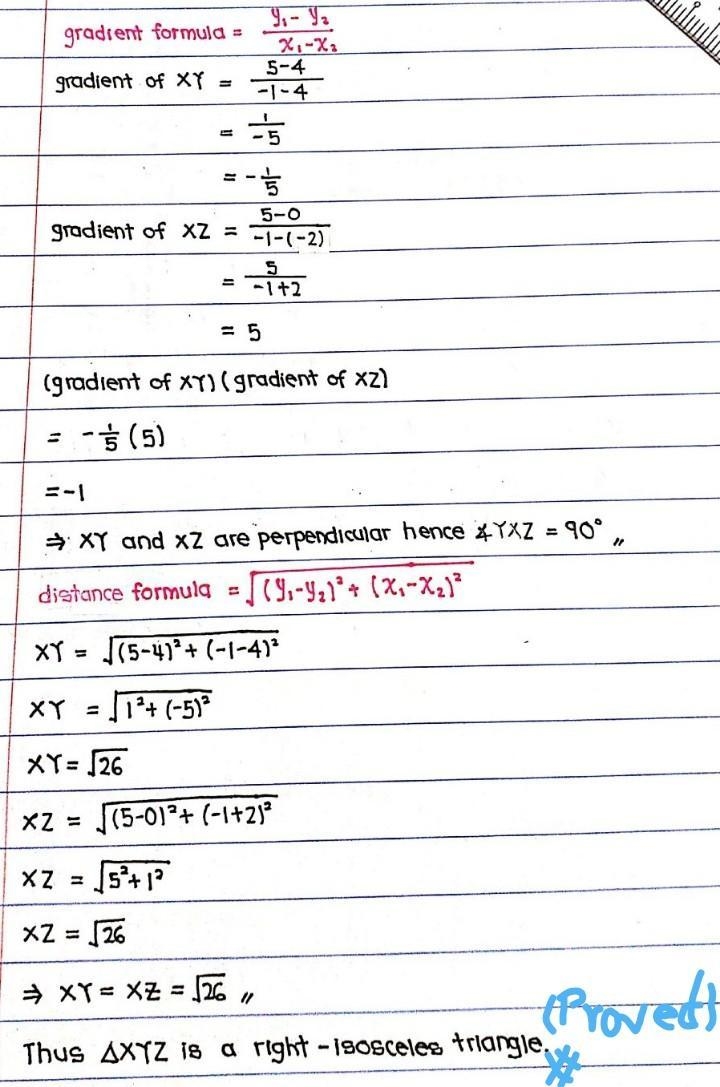 gradient formula = y₁ - y₂ / x₁ - x₂
gradient of XY = 5-4 / -1-4
= 1 / -5
= - 1/5
gradient of XZ = 5-0 / -1-(-2)
= 5 / -1+2
= 5
(gradient of XY)(gradient of XZ)
= - 1/5 (5)
= -1
⇒ XY and XZ are perpendicular hence ∡YXZ = 90° „
distance formula = √((y₁-y₂)² + (x₁-x₂)²)
XY = √((5-4)² + (-1-4)²)
XY = √(1² + (-5)²)
XY = √26
XZ = √((5-0)² + (-1+2)²)
XZ = √(5² + 1²)
XZ = √26
⇒ XY = XZ = √26 „
Thus △XYZ is a right-isosceles triangle. (Proved)